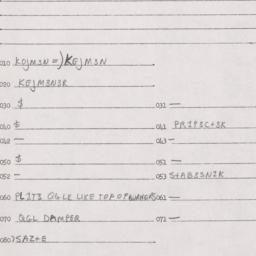 010 KOJM3N=)KEJM3N
020 KEJM3N3R
030 $ 031 —
040 $ 041 PR1P3C+3K
042 — 043 —
050 $ 051 —
052 — 053 S+ABS3N2K
060 PL2T3 OGLE LIKE TOP OF 061 —
070 OGL DAMPER 071 —
080 )SAZ+E